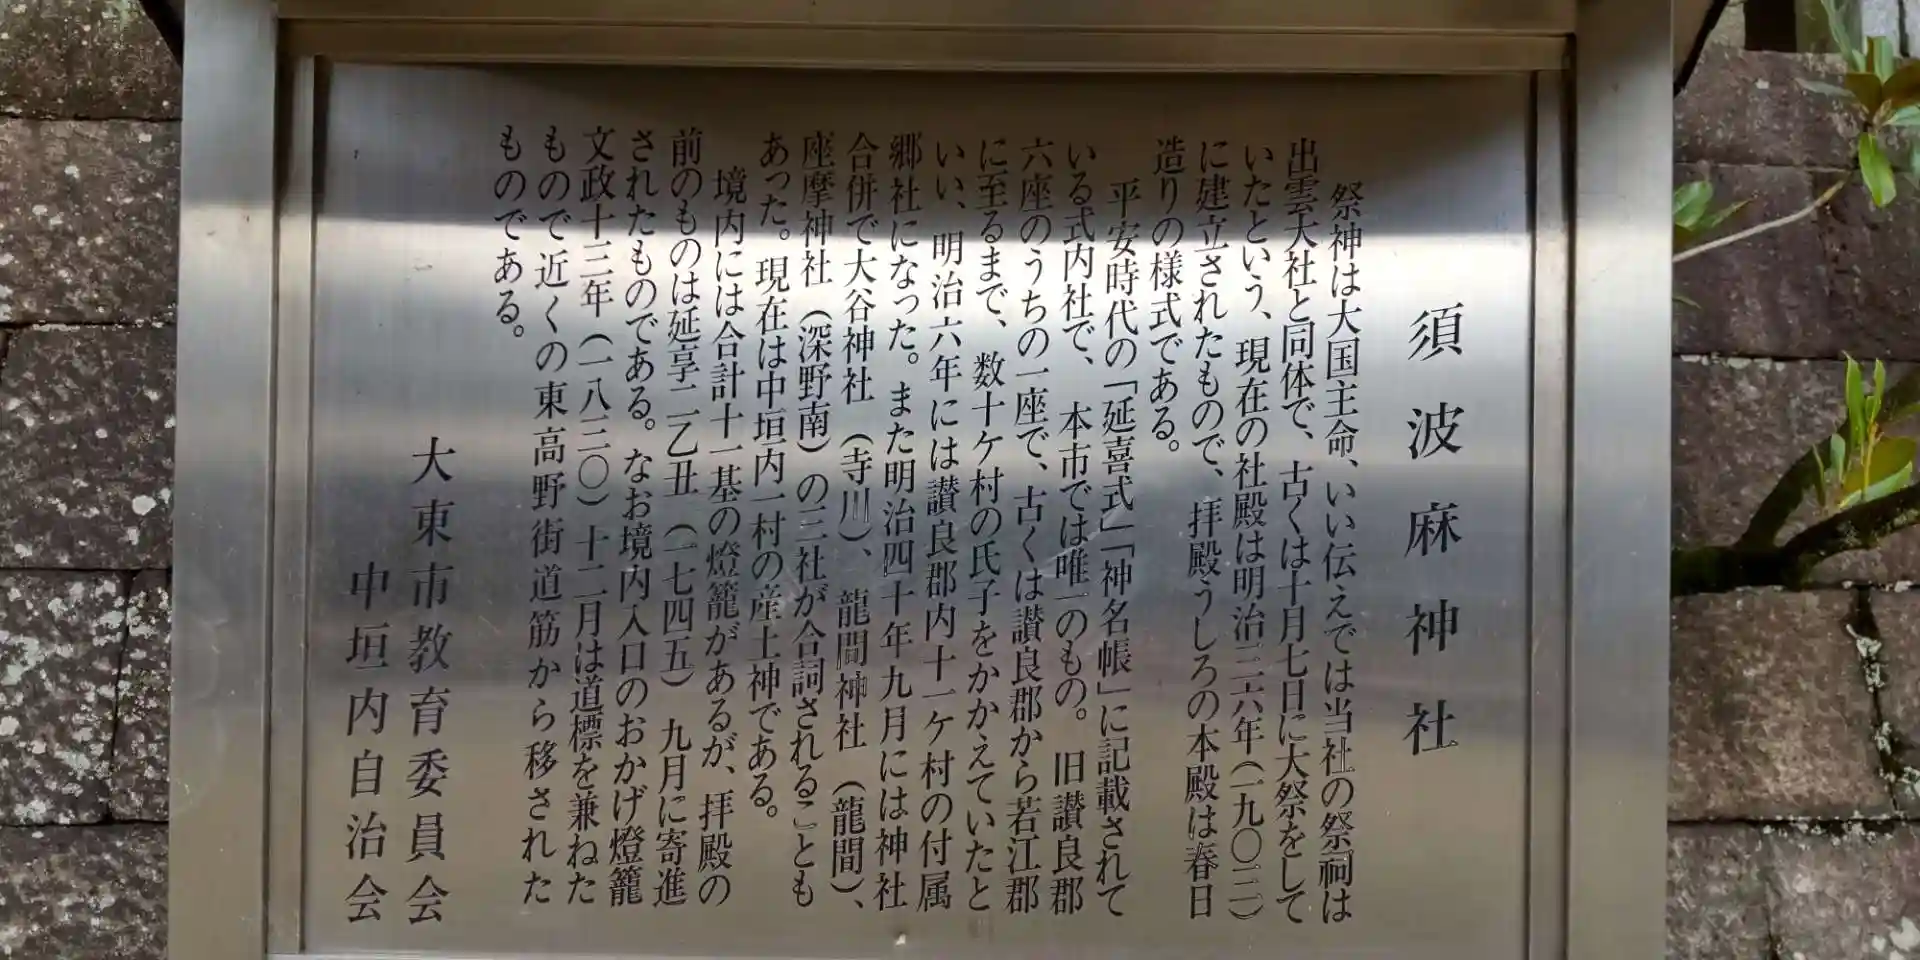 須波麻神社
祭神は大国主命、いい伝えでは当社の祭祠は
出雲大社と同体で、古くは十月七日に大祭をして
いたという、現在の社殿は明治三六年（一九〇三）
に建立されたもので、拝殿うしろの本殿は春日
造りの様式である。
平安時代の「延喜式」「神名帳」に記載されて
いる式内社で、本市では唯一のもの。旧讃良郡
六座のうちの一座で、古くは讃良郡から若江郡
に至るまで、数十ケ村の氏子をかかえていたと
いい、明治六年には讃良郡内十一ケ村の付属
郷社になった。また明治四十年九月には神社
合併で大谷神社（寺川）、龍間神社（龍間）、
座摩神社（深野南）の三社が合詞されることも
あった。現在は中垣内一村の産土神である。
境内には合計十一基の燈籠があるが、拝殿の
前のものは延享二乙丑（一七四五）九月に寄進
されたものである。なお境内入口のおかげ燈籠
文政十三年（一八三〇）十二月は道標を兼ねた
もので近くの東高野街道筋から移された
ものである。
大東市教育委員会
中垣内自治会